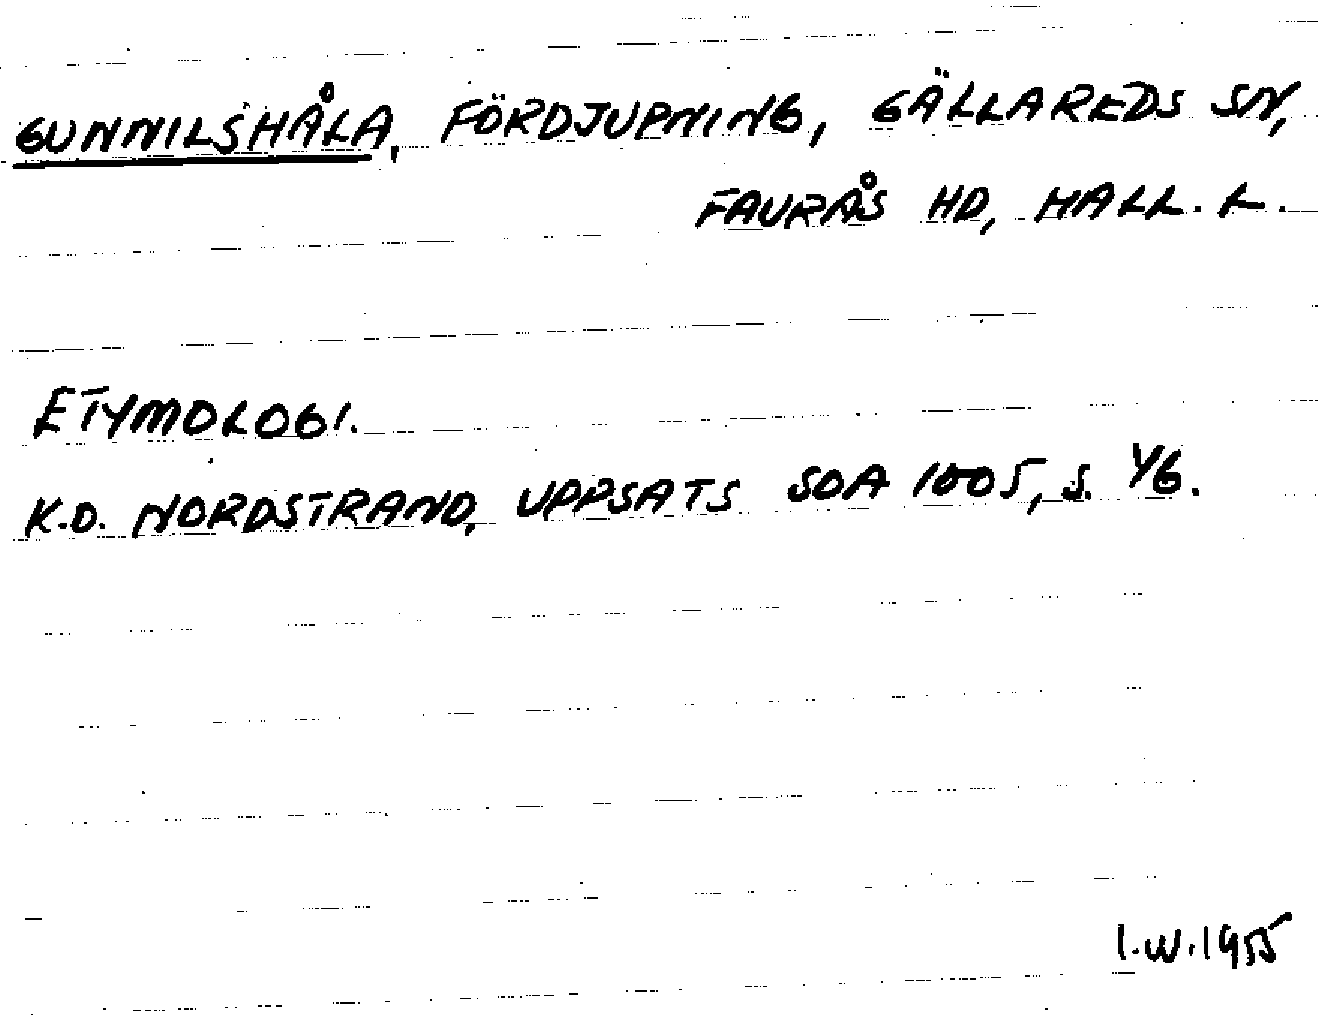 GUNNILSHÅLA, FÖRDJUPNING, GÄLLAREDS SN,
FAURÅS HD, HALL. L.
ETYMOLOGI.
K.D. NORDSTRAND, UPPSATS SOA 1005, S. 46.
I.W. 1955